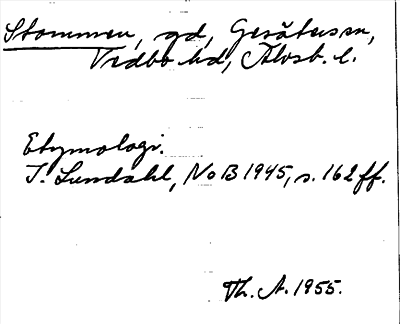 Stommen, gd, Gesäters sn,
Vedbo hd, Älvsb. l.
Etymologi.
I. Lundahl, NoB 1945, s. 162 ff.
Th. A. 1955.